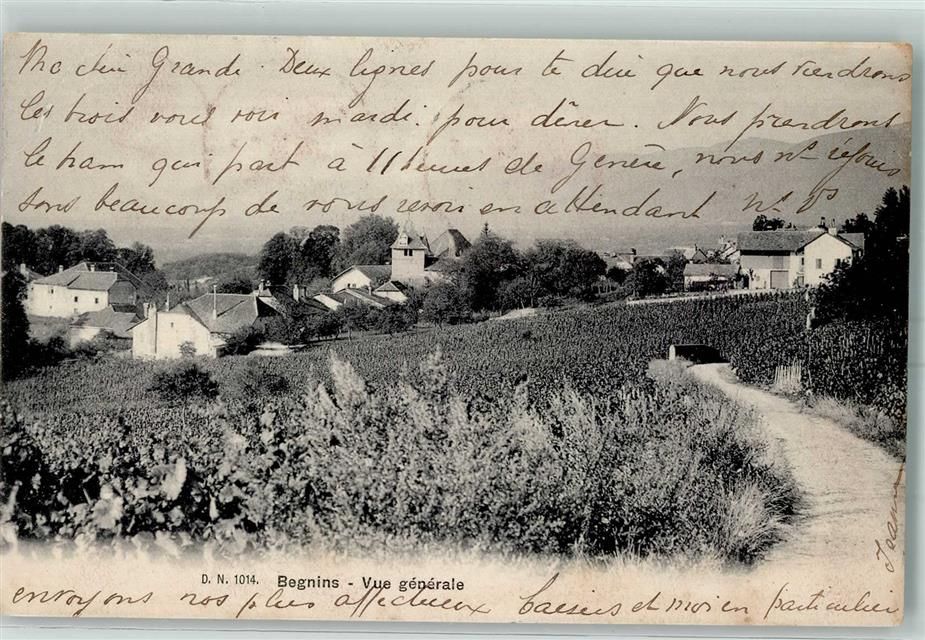 Ma chère Grande. Deux lignes pour te dire que nous viendrons
les trois vous voir mardi. pour dîner. Nous prendrons
le tram qui part à 11 heures de Genève, nous n. réjouis
sons beaucoup de vous revoir en attendant n. vs
D. N. 1014. Begnins - Vue générale
envoyons nos plus affectueux baisers et moi en particulier
Jeanne